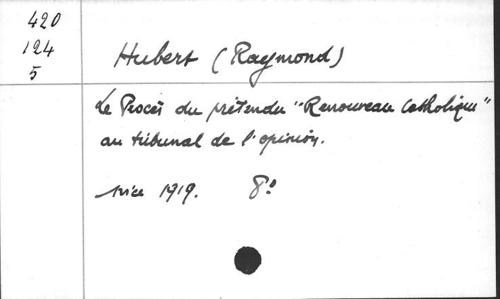 420
124
5
Hubert (Raymond)
Le Procès du prétendu "Renouveau Catholique"
au tribunal de l'opinion.
Nice 1919. 8º